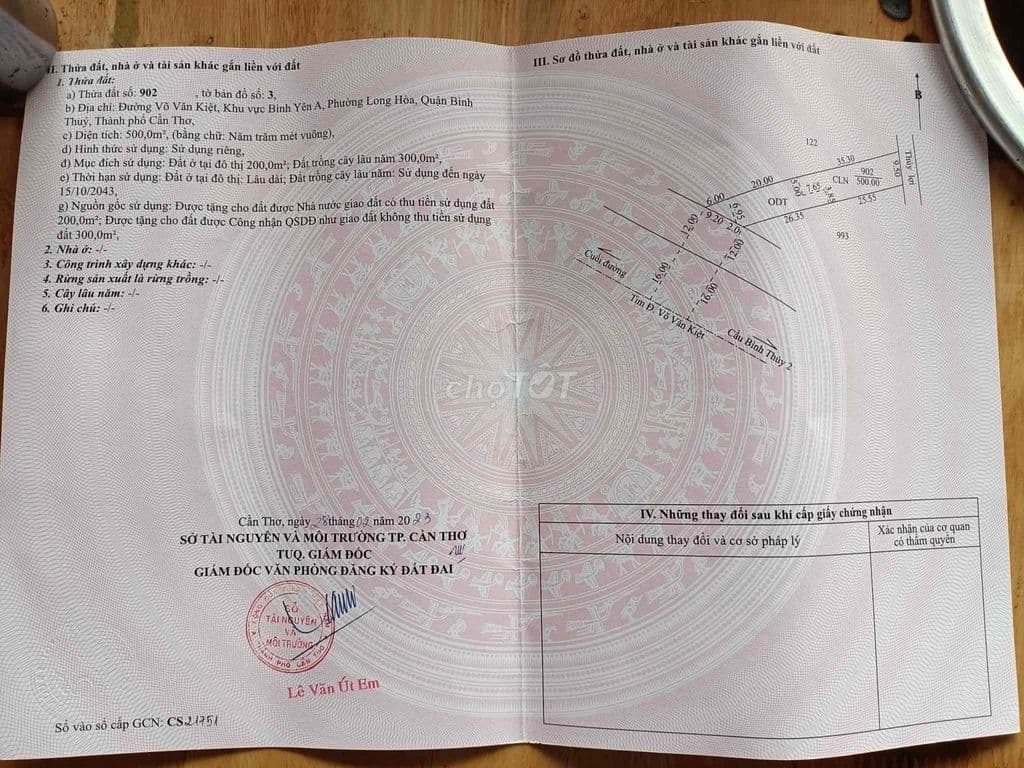 II. Thửa đất, nhà ở và tài sản khác gắn liền với đất
1. Thửa đất:
a) Thửa đất số: 902 , tờ bản đồ số: 3,
b) Địa chỉ: Đường Võ Văn Kiệt, Khu vực Bình Yên A, Phường Long Hòa, Quận Bình
Thuỷ, Thành phố Cần Thơ,
c) Diện tích: 500,0m², (bằng chữ: Năm trăm mét vuông),
d) Hình thức sử dụng: Sử dụng riêng,
đ) Mục đích sử dụng: Đất ở tại đô thị 200,0m²; Đất trồng cây lâu năm 300,0m²,
e) Thời hạn sử dụng: Đất ở tại đô thị: Lâu dài; Đất trồng cây lâu năm: Sử dụng đến ngày
15/10/2043,
g) Nguồn gốc sử dụng: Được tặng cho đất được Nhà nước giao đất có thu tiền sử dụng đất
200,0m²; Được tặng cho đất được Công nhận QSDĐ như giao đất không thu tiền sử dụng
đất 300,0m²,
2. Nhà ở: -/-
3. Công trình xây dựng khác: -/-
4. Rừng sản xuất là rừng trồng: -/-
5. Cây lâu năm: -/-
6. Ghi chú: -/-
Cần Thơ, ngày 28 tháng 02 năm 2023
SỞ TÀI NGUYÊN VÀ MÔI TRƯỜNG TP. CẦN THƠ
TUQ. GIÁM ĐỐC
GIÁM ĐỐC VĂN PHÒNG ĐĂNG KÝ ĐẤT ĐAI
SỞ
TÀI NGUYÊN
VÀ
MÔI TRƯỜNG
THÀNH PHỐ CẦN THƠ
Lê Văn Út Em
Số vào sổ cấp GCN: CS21751
III. Sơ đồ thửa đất, nhà ở và tài sản khác gắn liền với đất
B
122
35.30
Thủy lợi
9.50
902
CLN 500.00
20.00
5.00
7.65
3.85
25.55
ODT
6.00
6.95
9.20
2.0
26.35
993
12.00
12.00
Cuối đường
16.00
16.00
Tim Đ. Võ Văn Kiệt
Cầu Bình Thủy 2
chợTỐT
IV. Những thay đổi sau khi cấp giấy chứng nhận
Nội dung thay đổi và cơ sở pháp lý
Xác nhận của cơ quan
có thẩm quyền